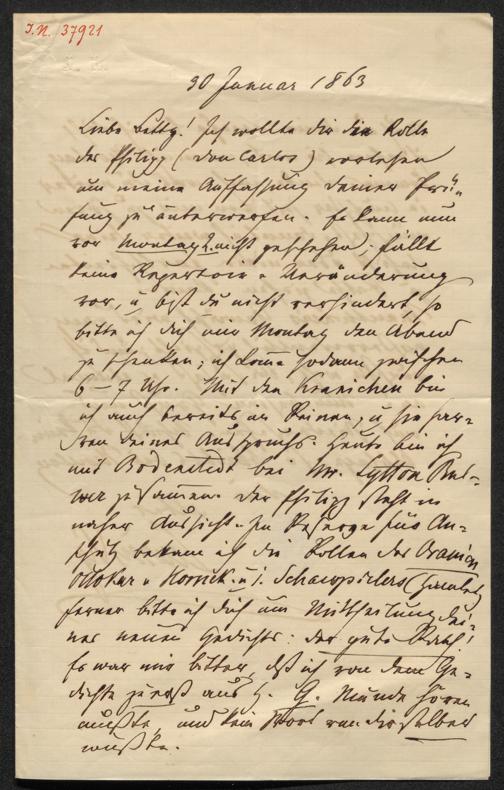 I.N. 37921
30 Januar 1863
Liebe Betty! Ich wollte dir die Rolle
des Philipp (Don Carlos) vorlesen
um meine Auffassung deiner Prü-
fung zu unterwerfen. Es kann nun
vor Montag 2. nicht geschehen; fällt
keine Repertoir = Veränderung
vor, u bist du nicht verhindert, so
bitte ich dich mir Montag den Abend
zu schenken; ich komme sodann zwischen
6 – 7 Uhr. Mit den Kranichen bin
ich auch bereits im Reinen, u sie har-
ren deines Ausspruchs. Heute bin ich
mit Bodenstedt bei Mr. Lytton Bul-
wer zusammen. Der Philipp steht in
naher Aussicht. In Reserve fürs
bekam ich die Rollen des Oranien
Ottokar u u. 1. Schauspielers (Hamlet)
ferner bitte ich dich um Mittheilung dei-
nes neuen Gedichts: der gute Rath!
Es war mir bitter, daß ich von dem Ge-
dichte zuerst aus H. G. Munde hören
mußte, und kein Wort von dir selber
wußte.